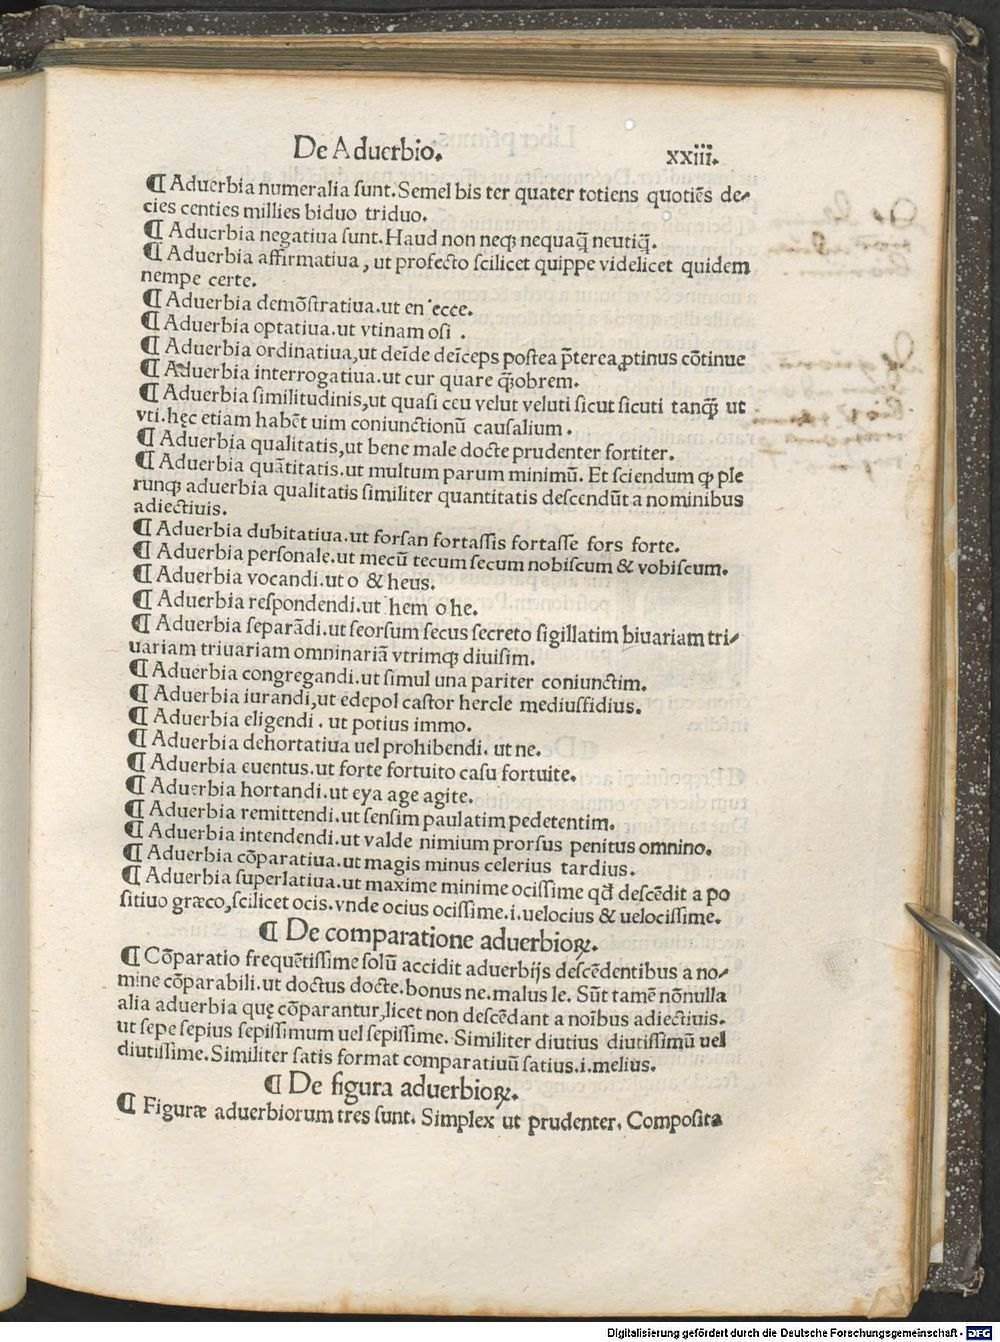 De Aduerbio.
xxiii.
¶ Aduerbia numeralia ſunt. Semel bis ter quater totiens quotiẽs de⸗
cies centies millies biduo triduo.
¶ Aduerbia negatiua ſunt. Haud non neqꝫ nequaꝗ̃ neutiꝗ̃.
¶ Aduerbia affirmatiua, ut profecto ſcilicet quippe videlicet quidem
nempe certe.
¶ Aduerbia demõſtratiua.ut en ecce.
¶ Aduerbia optatiua.ut vtinam oſi .
¶ Aduerbia ordinatiua,ut deĩde deĩceps poſtea p̃terea ꝓtinus cõtinue
¶ Aduerbia interrogatiua.ut cur quare ꝗ̃obrem.
¶ Aduerbia ſimilitudinis,ut quaſi ceu velut veluti ſicut ſicuti tanꝗ̃ ut
vti.hęc etiam habẽt uim coniunctionũ cauſalium .
¶ Aduerbia qualitatis,ut bene male docte prudenter fortiter.
¶ Aduerbia quãtitatis.ut multum parum minimũ. Et ſciendum ꝙ ple
runqꝫ aduerbia qualitatis ſimiliter quantitatis deſcendũt a nominibus
adiectiuis.
¶ Aduerbia dubitatiua.ut forſan fortaſſis fortaſſe fors forte.
¶ Aduerbia perſonale.ut mecũ tecum ſecum nobiſcum & vobiſcum.
¶ Aduerbia vocandi.ut o & heus.
¶ Aduerbia reſpondendi.ut hem o he.
¶ Aduerbia ſeparãdi.ut ſeorſum ſecus ſecreto ſigillatim biuariam tri⸗
uariam triuariam omninariã vtrimqꝫ diuiſim.
¶ Aduerbia congregandi.ut ſimul una pariter coniunctim.
¶ Aduerbia iurandi,ut edepol caſtor hercle mediuſfidius.
¶ Aduerbia eligendi . ut potius immo.
¶ Aduerbia dehortatiua uel prohibendi. ut ne.
¶ Aduerbia euentus.ut forte fortuito caſu fortuite.
¶ Aduerbia hortandi.ut eya age agite.
¶ Aduerbia remittendi.ut ſenſim paulatim pedetentim.
¶ Aduerbia intendendi.ut valde nimium prorſus penitus omnino.
¶ Aduerbia cõparatiua.ut magis minus celerius tardius.
¶ Aduerbia ſuperlatiua.ut maxime minime ociſſime qd̃ deſcẽdit a po
ſitiuo græco,ſcilicet ocis.vnde ocius ociſſime.i.uelocius & uelociſſime.
¶ De comparatione aduerbioꝝ.
¶ Cõparatio frequẽtiſſime ſolũ accidit aduerbijs deſcẽdentibus a no⸗
mine cõparabili.ut doctus docte.bonus ne.malus le. Sũt tamẽ nõnulla
alia aduerbia quę cõparantur,licet non deſcẽdant a noĩbus adiectiuis.
ut ſepe ſepius ſepiſſimum uel ſepiſſime. Similiter diutius diutiſſimũ uel
diutiſſime.Similiter ſatis format comparatiuũ ſatius.i.melius.
¶ De figura aduerbioꝝ.
¶ Figuræ aduerbiorum tres ſunt. Simplex ut prudenter. Compoſita
Digitalisierung gefördert durch die Deutsche Forschungsgemeinschaft - DFG